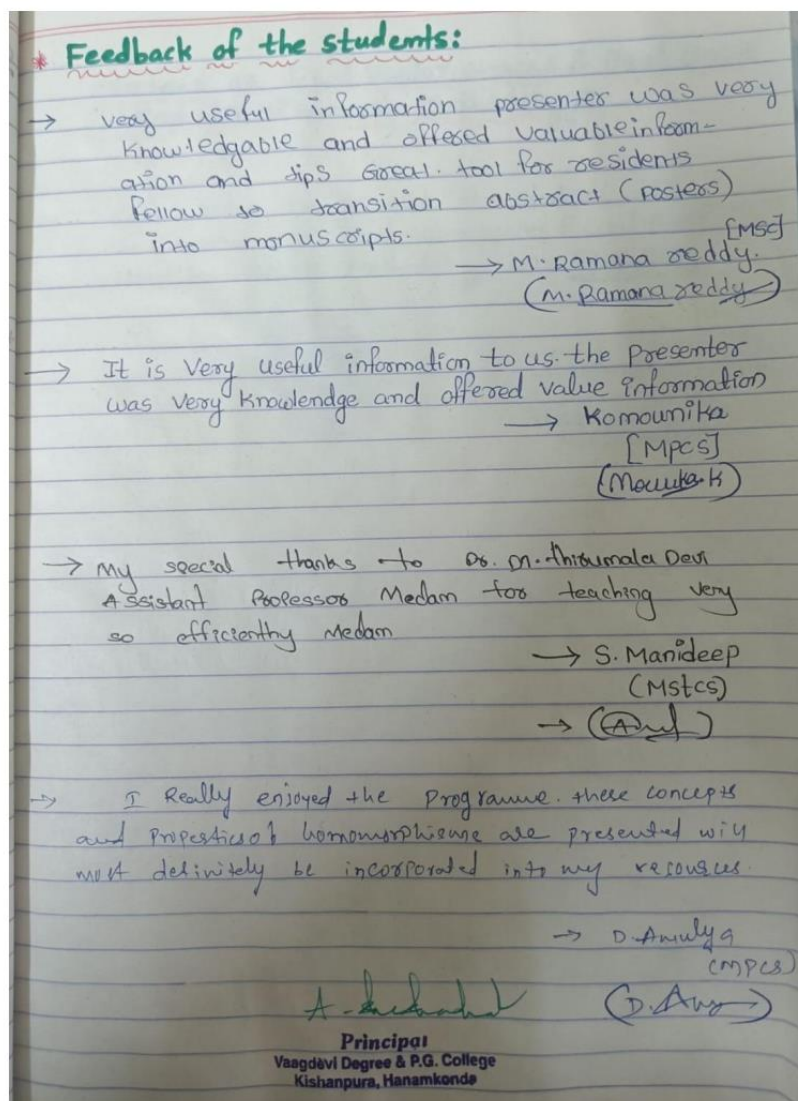 * Feedback of the students:
→ very useful information presenter was very
knowledgable and offered valuable inform-
ation and tips Great. tool for residents
fellow to transition abstract (posters)
into monuscripts.
[MSC]
→ M. Ramana reddy.
(M. Ramana reddy)
→ It is very useful information to us. the presenter
was very knowlendge and offered value information
→ Komounika
[MPCS]
(Mounika.K)
→ My special thanks to Dr. M. thirumala Devi
Assistant Professor Medam for teaching very
so efficienthy Medam
→ S. Manideep
(Mstcs)
→
→ I Really enjoyed the Programme. these concepts
and Properties of homomorphisme are presented will
most definitely be incorporated into my resources.
→ D. Amulya
(MPCS)
A.
(D. Amy)
Principal
Vaagdevi Degree & P.G. College
Kishanpura, Hanamkonda